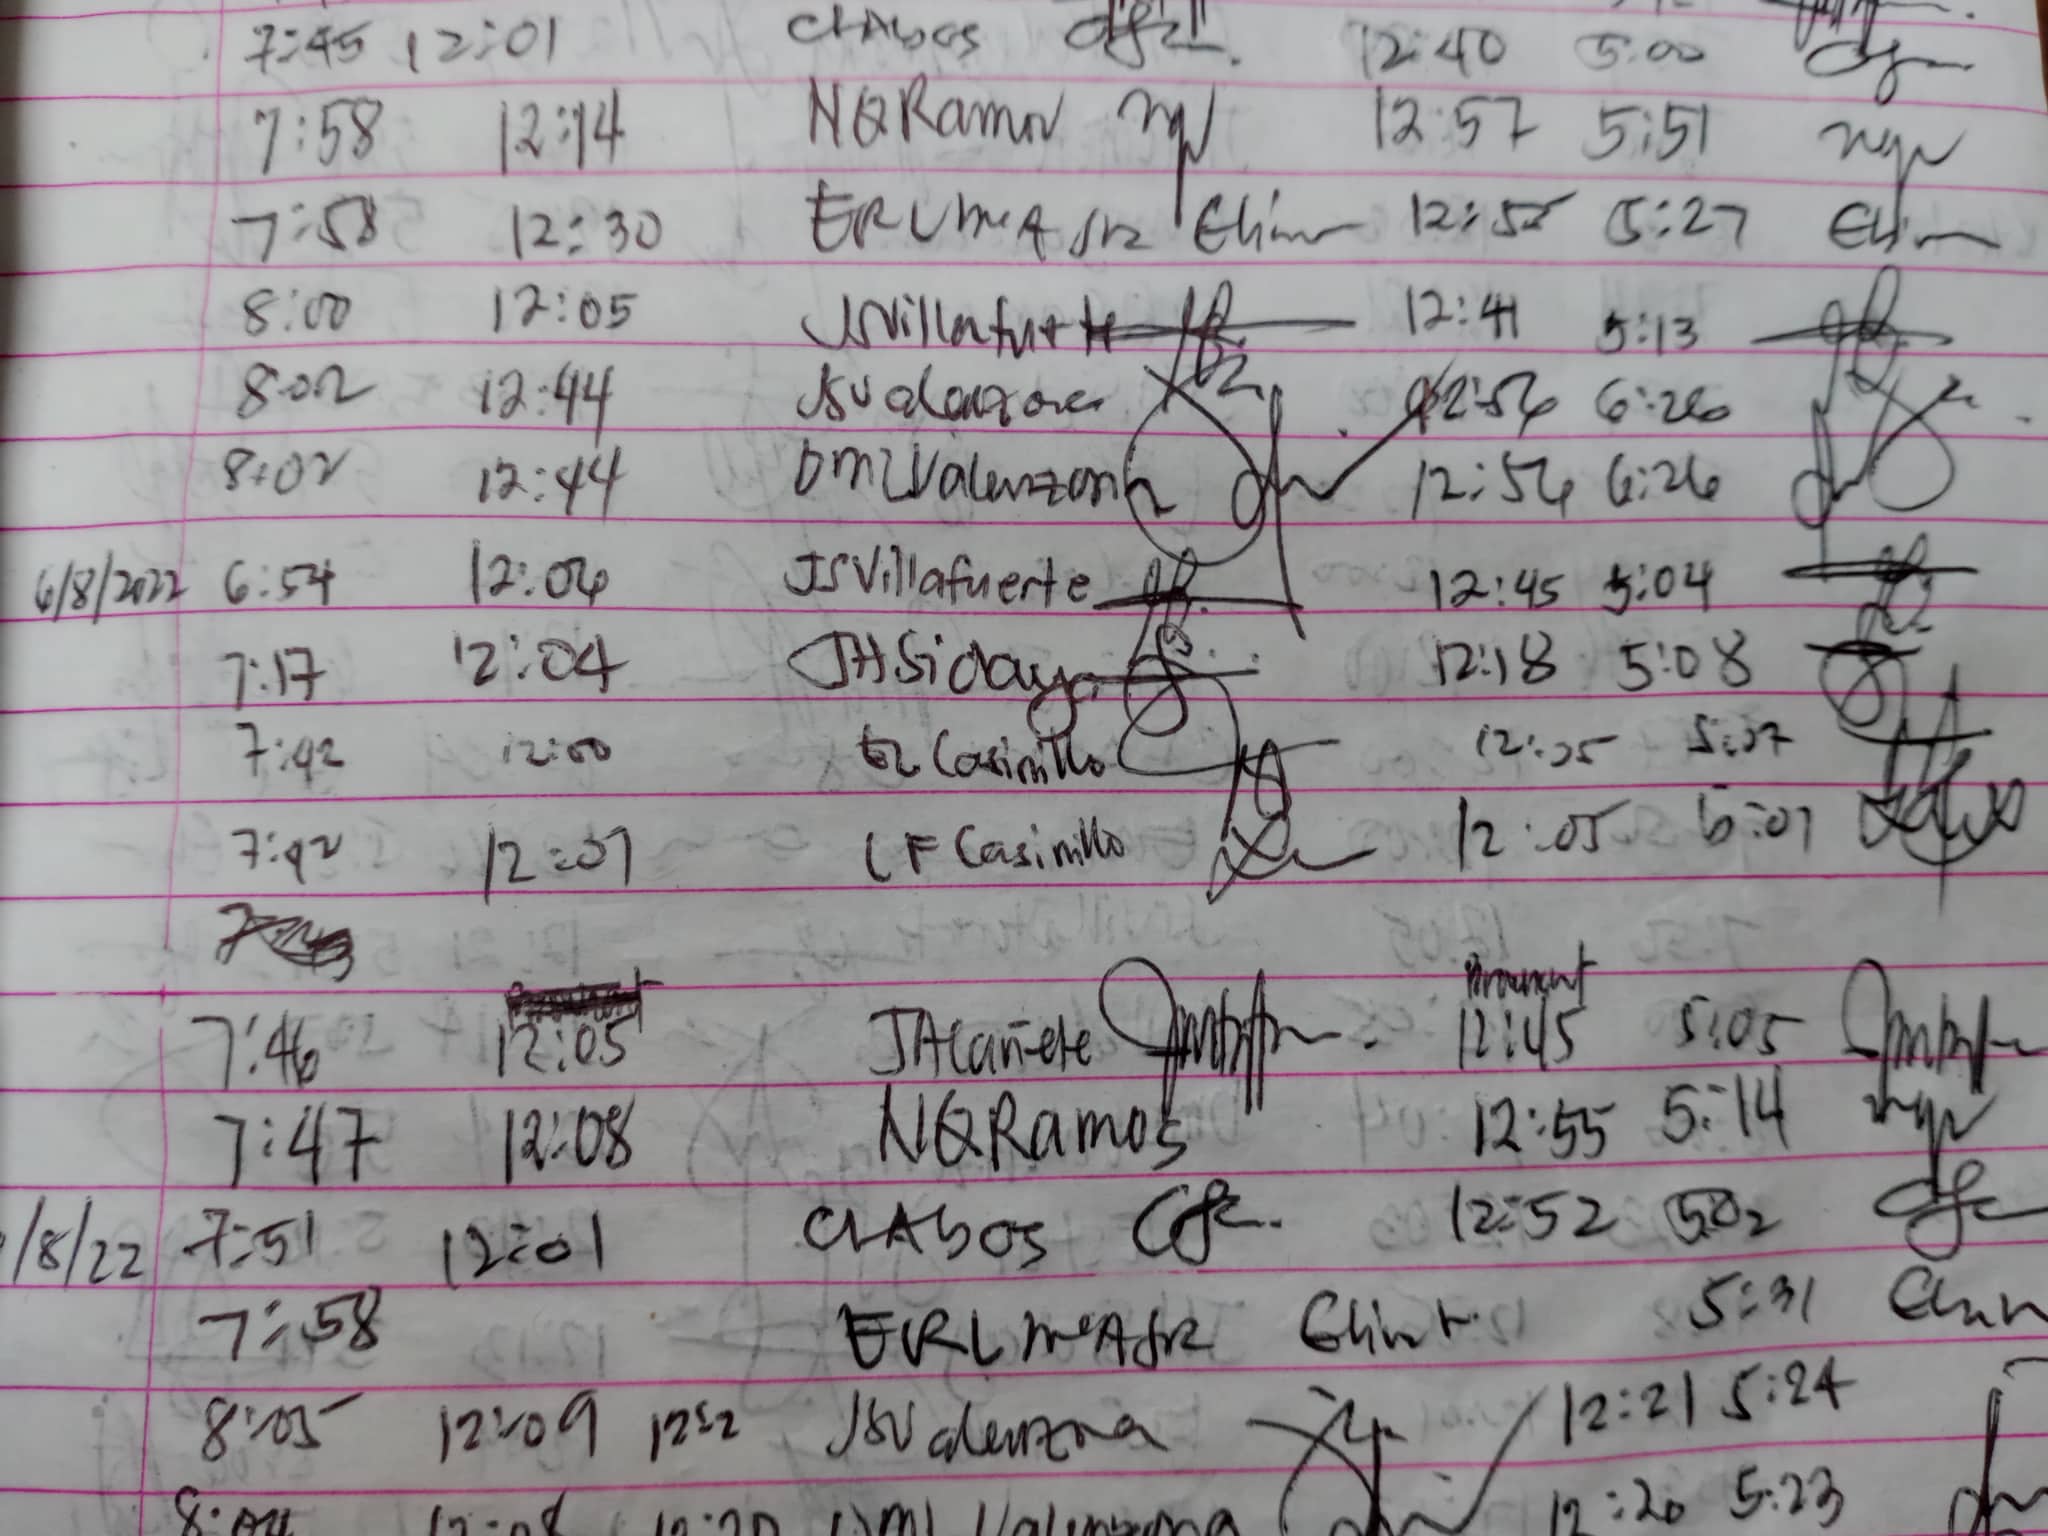 7:45 12:01 CLAbos 12:40 5:00
7:58 12:14 NQRamos 12:57 5:51
7:58 12:30 ERLMcAsrz 12:55 5:27
8:00 12:05 JSVillafuerte 12:41 5:13
8:02 12:44 JSValenzona 12:56 6:26
8:02 12:44 DMLValenzona 12:56 6:26
6/8/2022 6:54 12:06 JSVillafuerte 12:45 5:04
7:17 12:04 JHSiday 12:18 5:08
7:42 12:00 Casinillo 12:05 5:07
7:42 12:07 LF Casinillo 12:05 5:07
7:46 12:05 JACañete 12:45 5:05
7:47 12:08 NQRamos 12:55 5:14
/8/22 7:51 12:01 CLAbos 12:52 5:02
7:58 ERLMcAsrz 5:31
8:05 12:09 JSValenzona 12:21 5:24
DML Valenzona 12:20 5:23